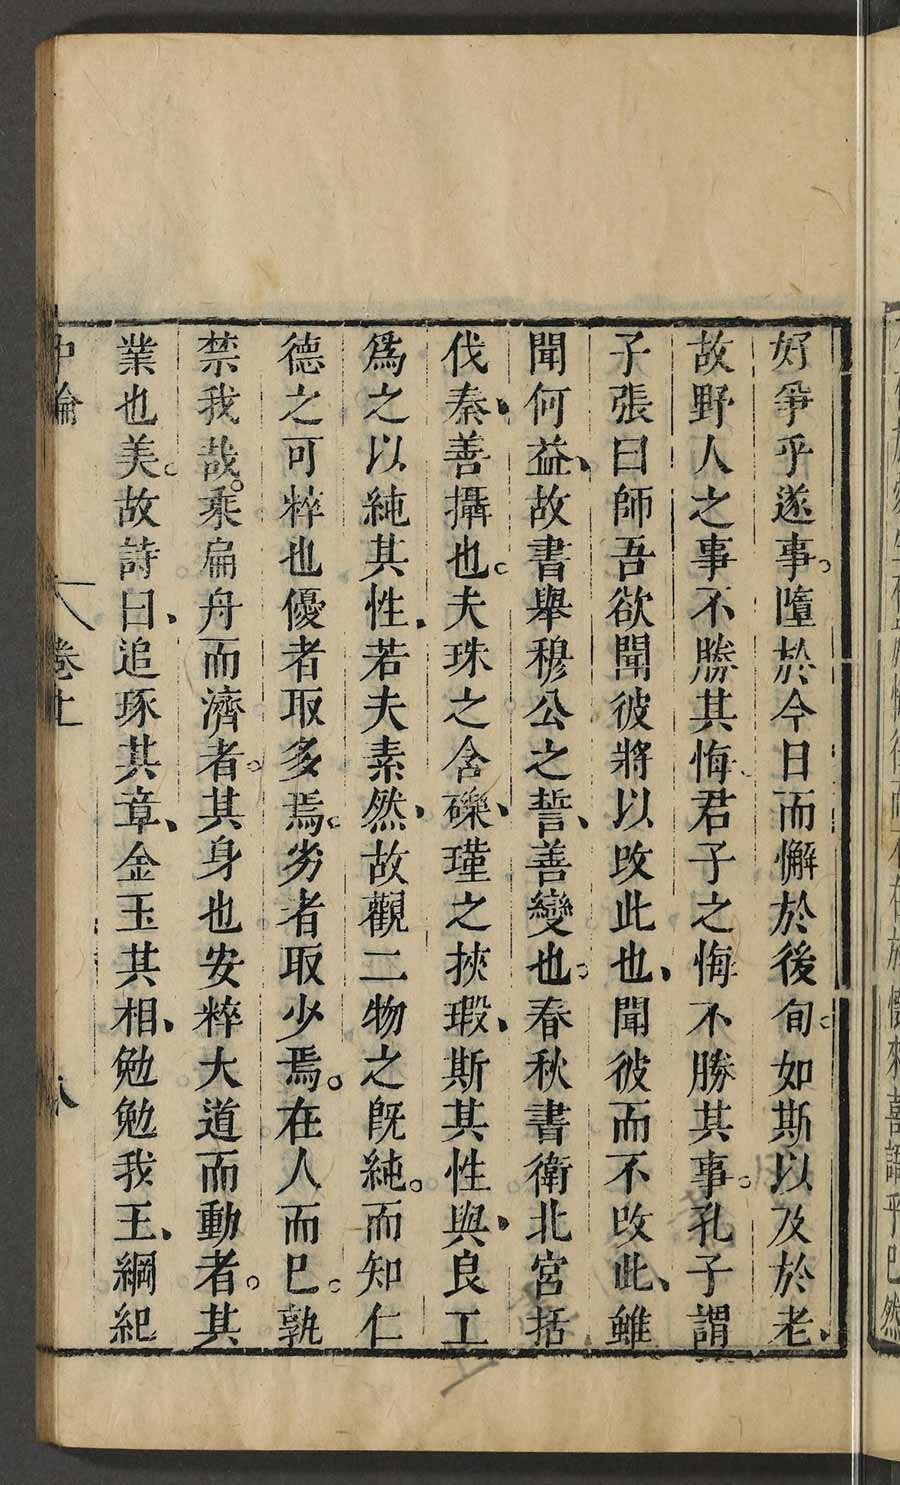 好爭乎遂事。墮於今日而懈於後旬。如斯以及於老、
故野人之事不勝其悔、君子之悔不勝其事。孔子謂
子張曰師吾欲聞彼將以攺此也、聞彼而不攺此、雖
聞何益、故書舉穆公之誓、善變也。春秋書衛北宮括
伐秦、善攝也。夫珠之含礫、瑾之挾瑕、斯其性與、良工
爲之以純其性、若夫素然、故觀二物之旣純。而知仁
德之可粹也優者取多焉。劣者取少焉。在人而已。孰
禁我哉。乘扁舟而濟者。其身也安粹大道而動者。其
業也美。故詩曰、追琢其章、金玉其相、勉勉我王、綱紀
中論
卷上
八